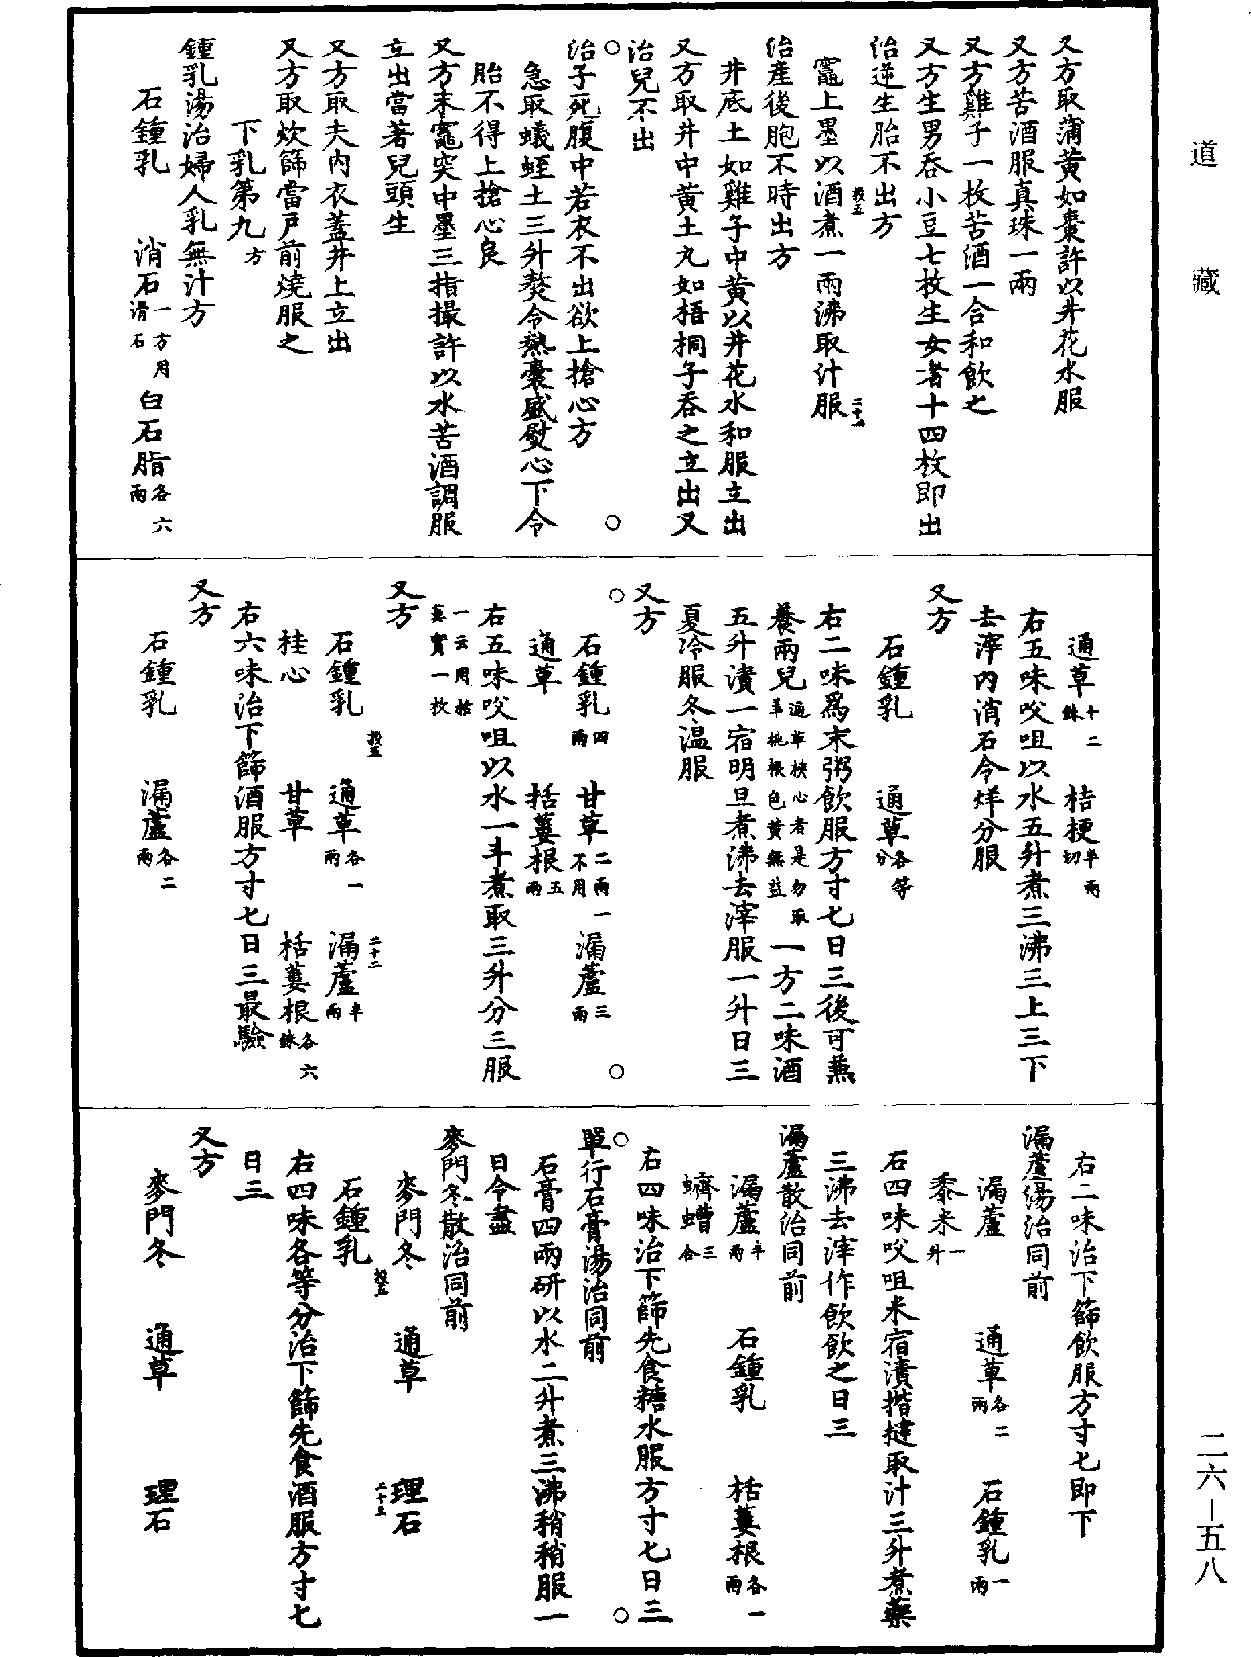 道藏
又方取蒲黃如棗許以井花水服
又方苦酒服真珠一兩
又方雞子一枚苦酒一合和飲之
又方生男吞小豆七枚生女者十四枚即出
治逆生胎不出方
竈上墨以酒煮一兩沸取汁服
治產後胞不時出方
井底土如雞子中黃以井花水和服立出
又方取井中黃土丸如梧桐子吞之立出又
治兒不出
治子死腹中若衣不出欲上搶心方
急取蟻蛭土三升熬令熱囊盛熨心下令
胎不得上搶心良
又方末竈突中墨三指撮許以水苦酒調服
立出當著兒頭生
又方取夫內衣蓋井上立出
又方取炊篩當戶前燒服之
下乳第九方
鍾乳湯治婦人乳無汁方
石鍾乳 消石一方用滑石 白石脂各六兩
通草十二銖 桔梗半兩切
右五味㕮咀以水五升煮三沸三上三下
去滓內消石令烊分服
又方
石鍾乳 通草各等分
右二味為末粥飲服方寸匕日三後可兼
養兩兒通草橫心者是勿取羊桃根色黃無益一方二味酒
五升漬一宿明旦煮沸去滓服一升日三
夏冷服冬温服
又方
石鍾乳四兩 甘草二兩一不用 漏蘆三兩
通草 栝蔞根五兩
右五味㕮咀以水一斗煮取三升分三服
一云用栝蔞實一枚
又方
石鍾乳 通草各一兩 漏蘆半兩
桂心 甘草 栝蔞根各六銖
右六味治下篩酒服方寸匕日三最驗
又方
石鍾乳 漏蘆各二兩
右二味治下篩飲服方寸匕即下
漏蘆湯治同前
漏蘆 通草各二兩 石鍾乳一兩
黍米一升
右四味㕮咀米宿漬揩撻取汁三升煮藥
三沸去滓作飲飲之日三
漏蘆散治同前
漏蘆半兩 石鍾乳 栝蔞根各一兩
蠐螬三合
右四味治下篩先食糖水服方寸匕日三
單行石膏湯治同前
石膏四兩研以水二升煮三沸稍稍服一
日令盡
麥門冬散治同前
麥門冬 通草 理石
石鍾乳
右四味各等分治下篩先食酒服方寸匕
日三
又方
麥門冬 通草 理石
二六—五八